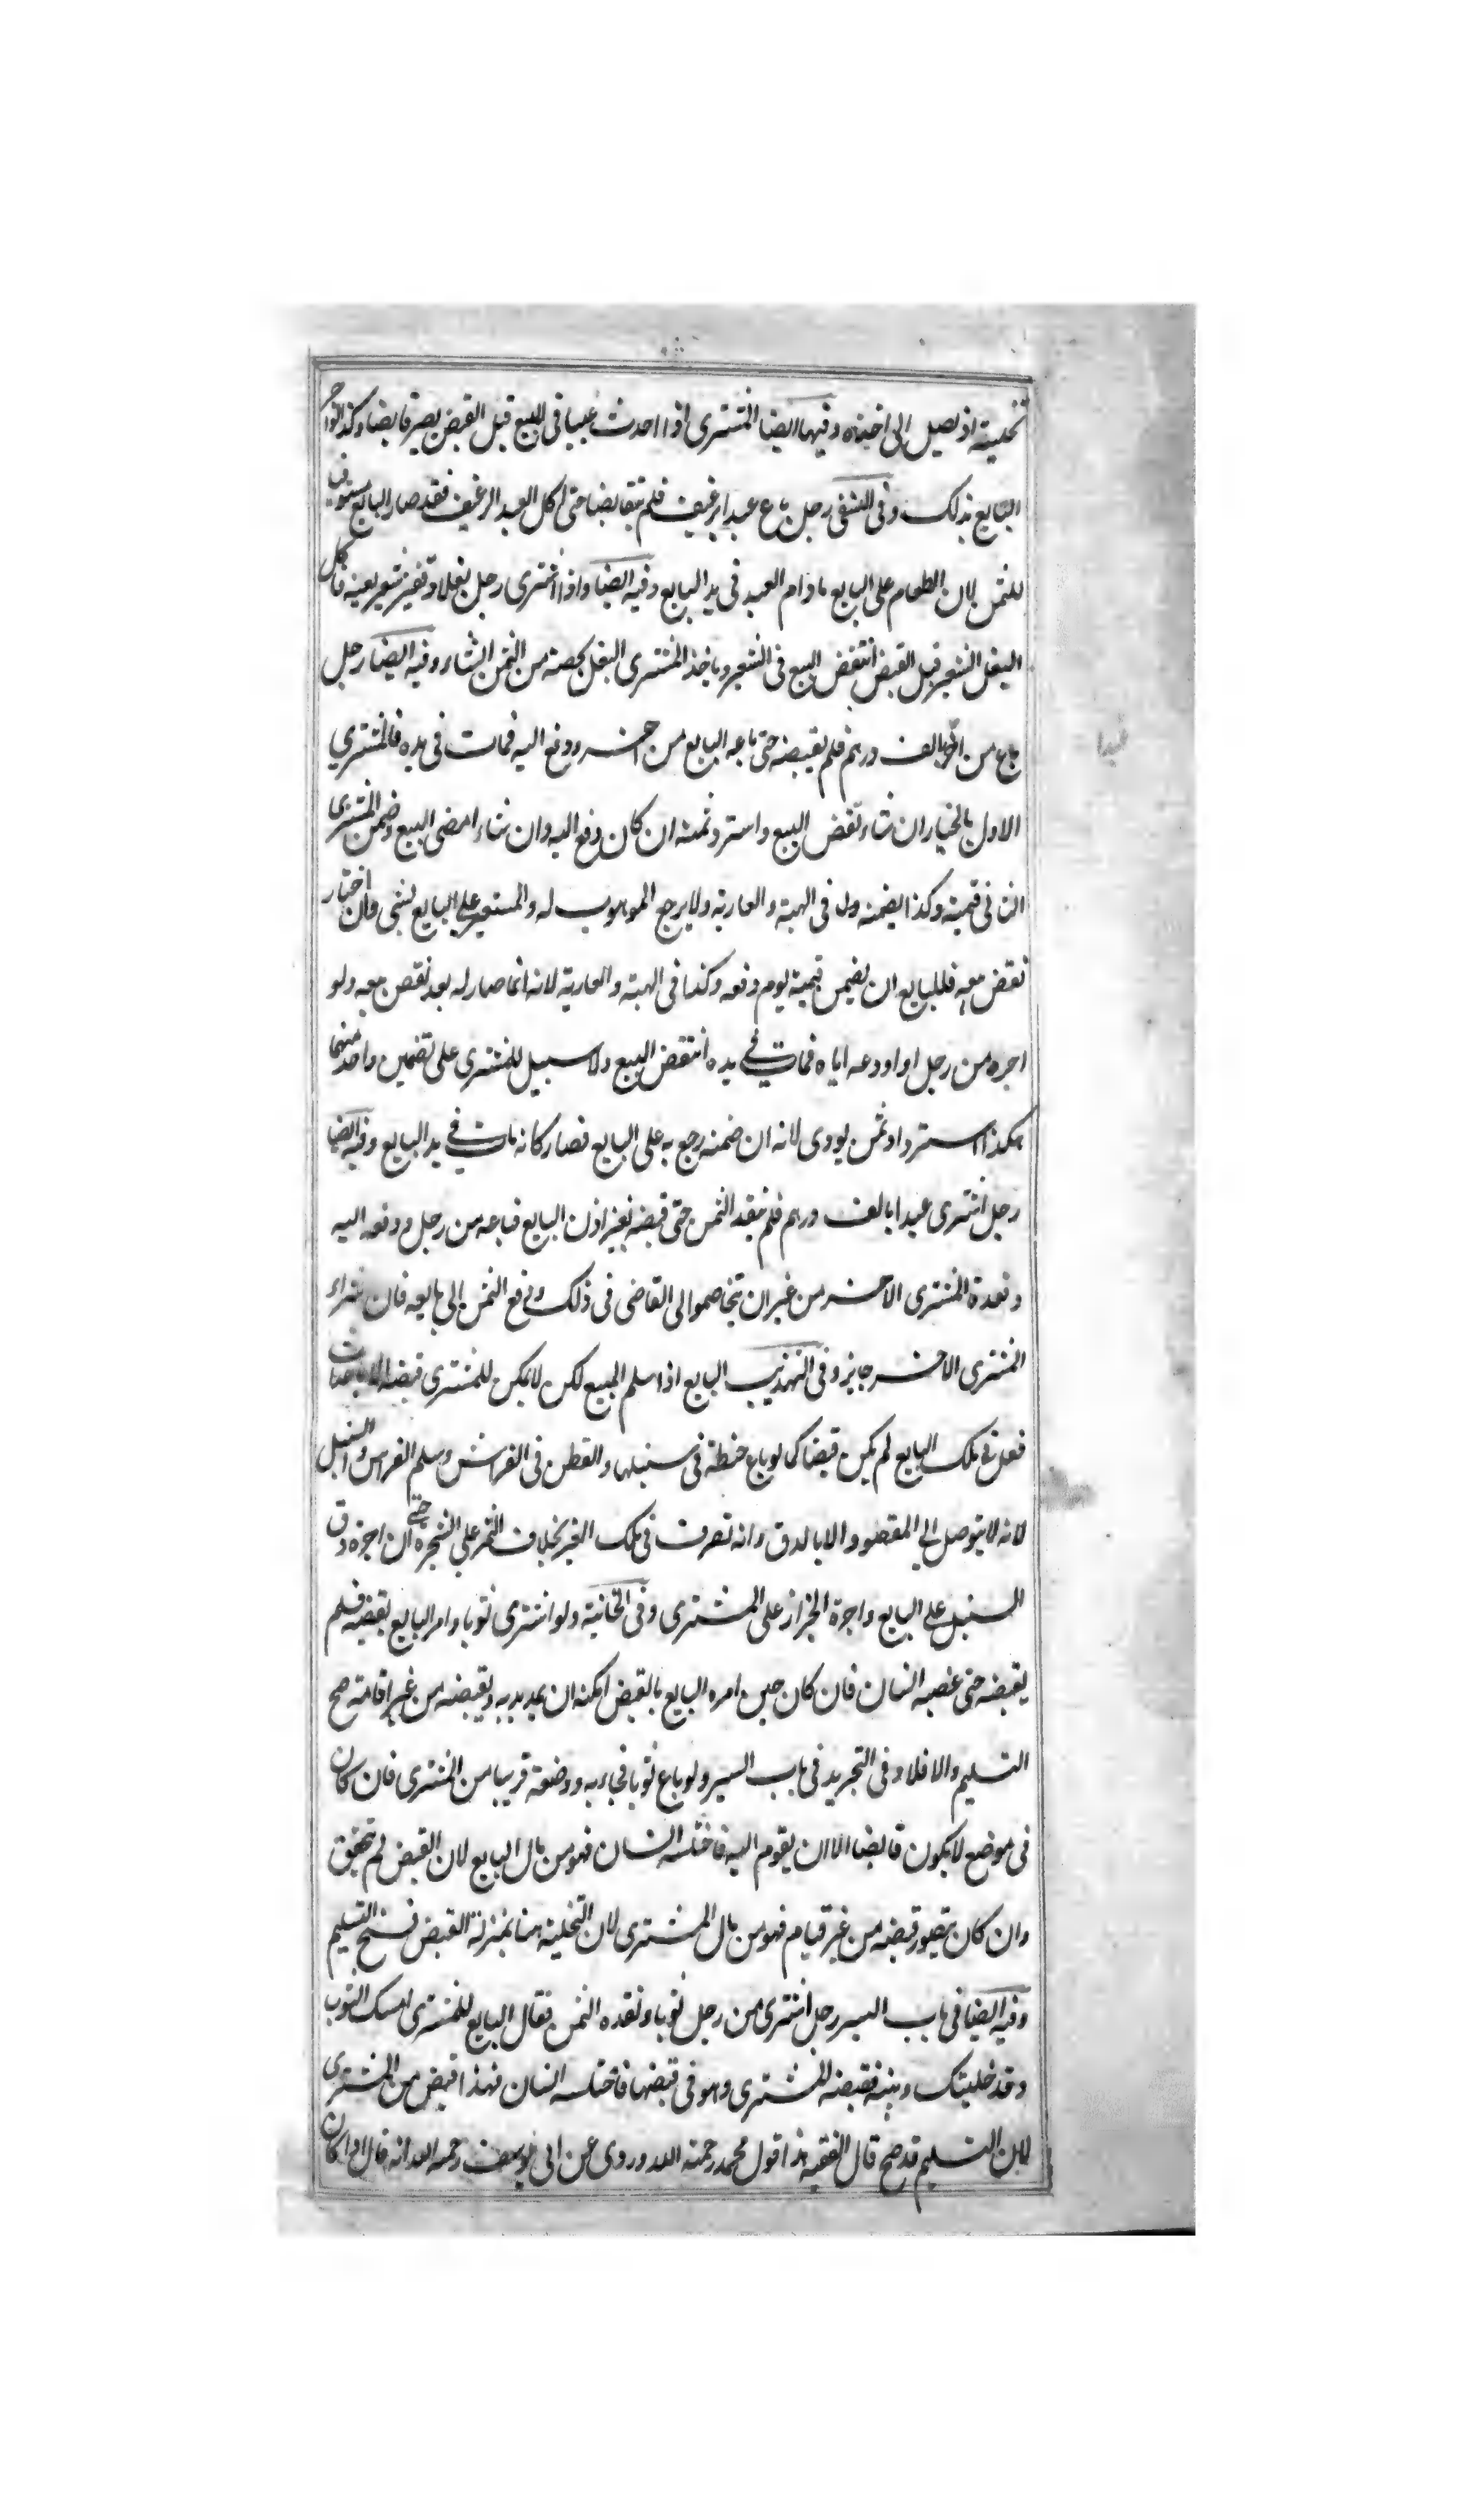 تخلية اذ يصل الى اخذه وفيها ايضا المشترى اذا احدث عيبا فى المبيع قبل القبض يصير قابضا وكذا لو امر
البايع بذلك وفى المنتقى رجل باع عبدا برغيف فلم يتقابضا حتى اكل العبد الرغيف فقد صار البايع مستوفيا
للثمن لان الطعام على البايع ما دام العبد فى يد البايع وفيه ايضا واذا اشترى رجل بغلا وقفيز شعير بعينه فاكل
البغل الشعير قبل القبض انتقض البيع فى الشعير وياخذ المشترى البغل بحصته من الثمن ان شاء وفيه ايضا رجل
باع من آخر بالف درهم فلم يقبضه حتى باعه البايع من آخر ودفع اليه فمات فى يده فالمشتري
الاول بالخيار ان شاء نقض البيع واسترد ثمنه ان كان دفع اليه وان شاء امضى البيع وضمن المشترى
الثانى قيمته وكذا يضمنه فى الهبة والعارية ولا يرجع الموهوب له والمستعير على البايع بشى وان اختار
نقض بيعه فللبايع ان يضمن قيمته يوم دفعه وكذا فى الهبة والعارية لانه انما صار له بعد نقض بيعه ولو
اجره من رجل او اودعه اياه فمات في يده انتقض البيع ولا سبيل للمشترى على تضمين واحد منهما
هكذا استرداد ثمن يودى لانه ان ضمنه رجع به على البايع فصار كانه مات في يد البايع وفيه ايضا
رجل اشترى عبدا بالف درهم فلم ينقد الثمن حتى قبضه بغير اذن البايع فباعه من رجل ودفعه اليه
ونقده المشترى الآخر من غير ان يتخاصموا الى القاضى فى ذلك ودفع الثمن الى بايعه فان شراء
المشترى الآخر جايز وفى التهذيب البايع اذا سلم المبيع لكن لا يمكن للمشترى قبضه الا باحداث
فعل فى ملك البايع لم يكن قبضا كما لو باع حنطة فى سنبلها والقطن فى الفراش وسلم الفراش والسنبل
لانه لا يتوصل الي المقصود الا بالدق وانه تصرف فى ملك الغير بخلاف الثمر علي الشجرة حتى ان اجرة دق
السنبل علي البايع واجرة الجزاز على المشترى وفى الخانية ولو اشترى ثوبا وامر البايع بقبضه فلم
يقبضه حتى غصبه انسان فان كان حين امره البايع بالقبض امكنه ان يمد يديه ويقبضه من غير اقامة صح
التسليم والا فلا وفى التجريد فى باب السير ولو باع ثوبا فجاء به ووضعه قريبا من المشترى فان كان
فى موضع لا يكون قابضا الا ان يقوم اليه فاختلسه انسان فهو من مال البايع لان القبض لم يتحقق
وان كان يتصور قبضه من غير قيام فهو من مال المشترى لان التخلية هنا بمنزلة القبض فصح التسليم
وفيه ايضا فى باب السير رجل اشترى من رجل ثوبا ونقده الثمن فقال البايع للمشترى امسك الثوب
وقد خليتك وبينه فقبضه المشترى وهو فى قبضها فاختلسه انسان فهذا قبض من المشترى
لان التسليم قد صح قال الفقيه هذا قول محمد رحمة الله وروى عن ابى يوسف رحمه الله انه قال اذا كان